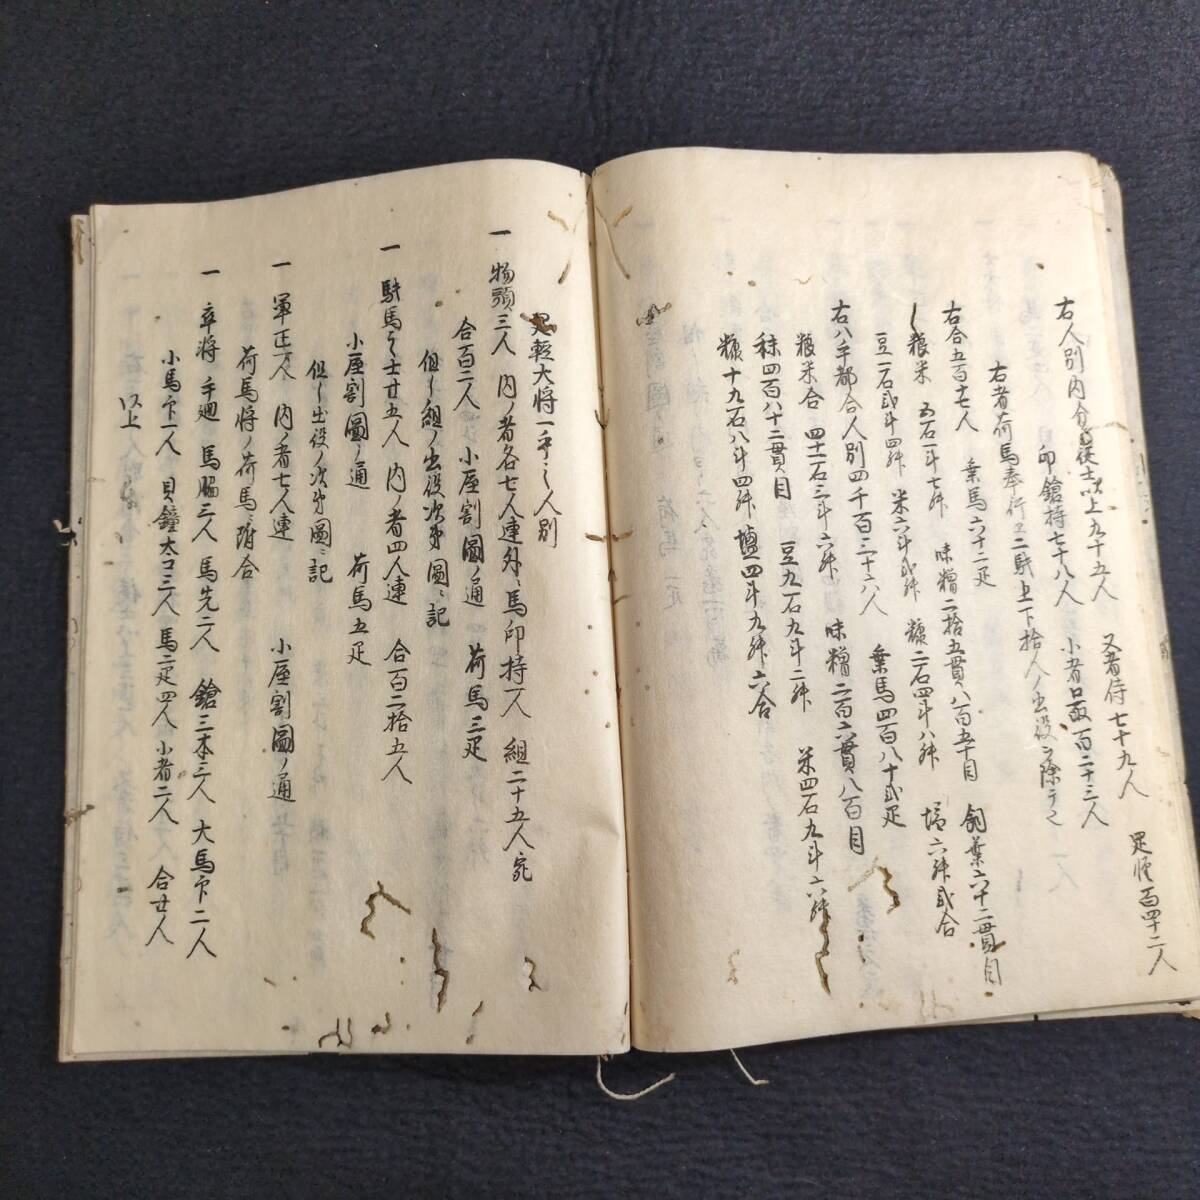 右人別内分 徒士以上九十五人 又者侍七十九人 足軽百四十二人
印鎗持七十八人 小者口取百二十三人
右者荷馬奉行ヱ二駄上下拾人ノ出役ヲ除テ之
右合五百十七人 乗馬六十二疋
糧米 五石一斗七舛 味噌二拾五貫八百五十目 飼葉六十二貫目
豆一石弐斗四舛 米六斗弐舛 糠二石四斗八舛 塩六舛弐合
右八手都合人別四千百三十六人 乗馬四百八十弐疋
粮米合 四十一石三斗六舛 味噌二百六貫八百目
秣四百八十二貫目 豆九石九斗二舛 米四石九斗六舛
糠十九石八斗四舛 塩四斗九舛六合
足軽大将一手之人別
一 物頭三人 内ノ者各七人連外ニ馬印持一人 組二十五人宛
合百二人 小屋割圖ノ通 荷馬三疋
但シ組ノ出役次第圖ニ記
一 駄馬之士廿五人 内ノ者四人連 合百二拾五人
小屋割圖ノ通 荷馬五疋
但シ出役ノ次第圖ニ記
一 軍正一人 内ノ者七人連 小屋割圖ノ通
荷馬将ノ荷馬附合
一 卒将 手廻 馬脇三人 馬先二人 鎗三本三人 大馬印二人
小馬印一人 貝鐘太コ三人 馬二疋四人 小者二人 合廿人
以上